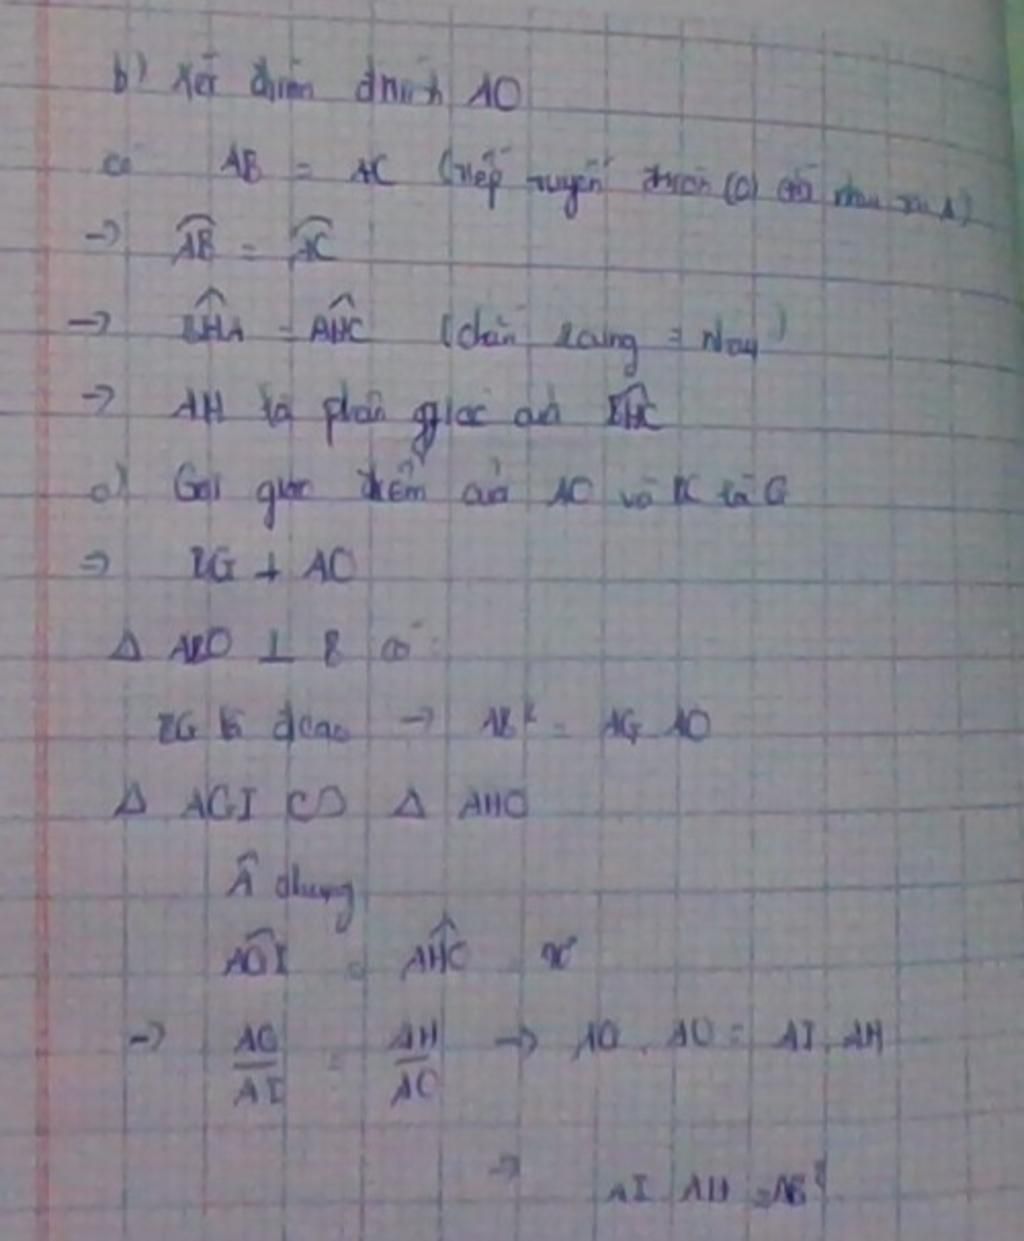 b) Xét đường tròn đkính AO
có AB = AC (tiếp tuyến đường tròn (O) cắt nhau tại A)
-> AB = AC
-> BHA = AHC (chắn 2 cung = nhau)
-> AH là phân giác của BHC
c) Gọi giao điểm của AO và BC là G
=> BG ⊥ AO
Δ ABO ⊥ B có
BG là đcao -> AB² = AG . AO
Δ AGI ∽ Δ AHO
Â chung
AGI = AHO
-> AG/AI = AH/AO -> AG . AO = AI . AH
-> AI . AH = AB²